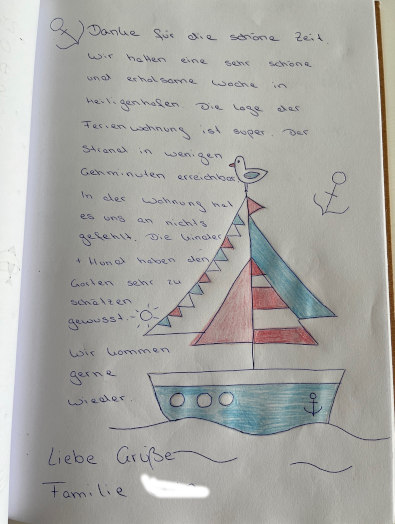 Danke für die schöne Zeit.
Wir hatten eine sehr schöne
und erholsame Woche in
Heiligenhafen. Die Lage der
Ferienwohnung ist super. Der
Strand in wenigen
Gehminuten erreichbar
In der Wohnung hat
es uns an nichts
gefehlt. Die Kinder
+ Hund haben den
Garten sehr zu
schätzen
gewusst.
Wir kommen
gerne
wieder.
Liebe Grüße
Familie